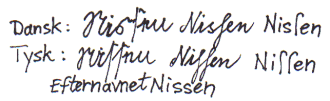 Dansk: Nissen Nissen Nissen
Tysk: Nissen Nissen Nissen
Efternavnet Nissen